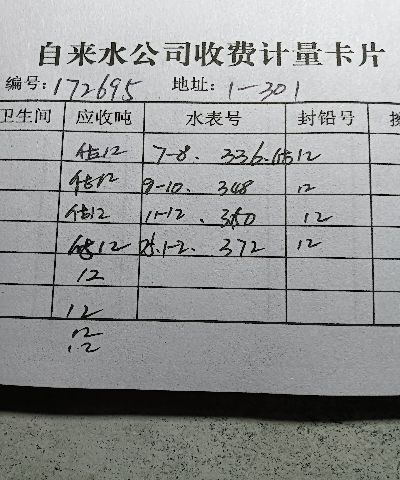 自来水公司收费计量卡片
编号:172695 地址:1-301
卫生间 应收吨 水表号 封铅号
估12 7-8. 336.估12
估12 9-10. 348 12
估12 11-12. 360 12
估12 25.1-2. 372 12
12
12
12